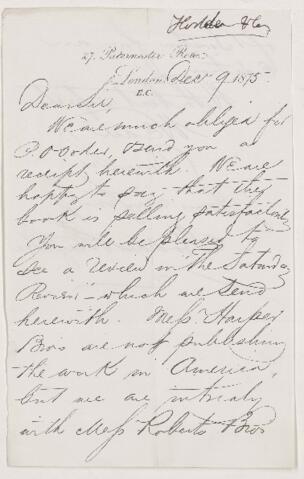 Hodder & Co
27, Paternoster Row,
London, Dec 9 1875
E.C.
Dear Sir,
We are much obliged for
P.O Order, & send you a
receipt herewith. We are
happy to say that the
book is selling satisfactorily
You will be pleased to
see a review in the Saturday
Review - which we send
herewith. Messrs Harper
Bros are not publishing
the work in America,
but we are in treaty
with Messrs Roberts Bros